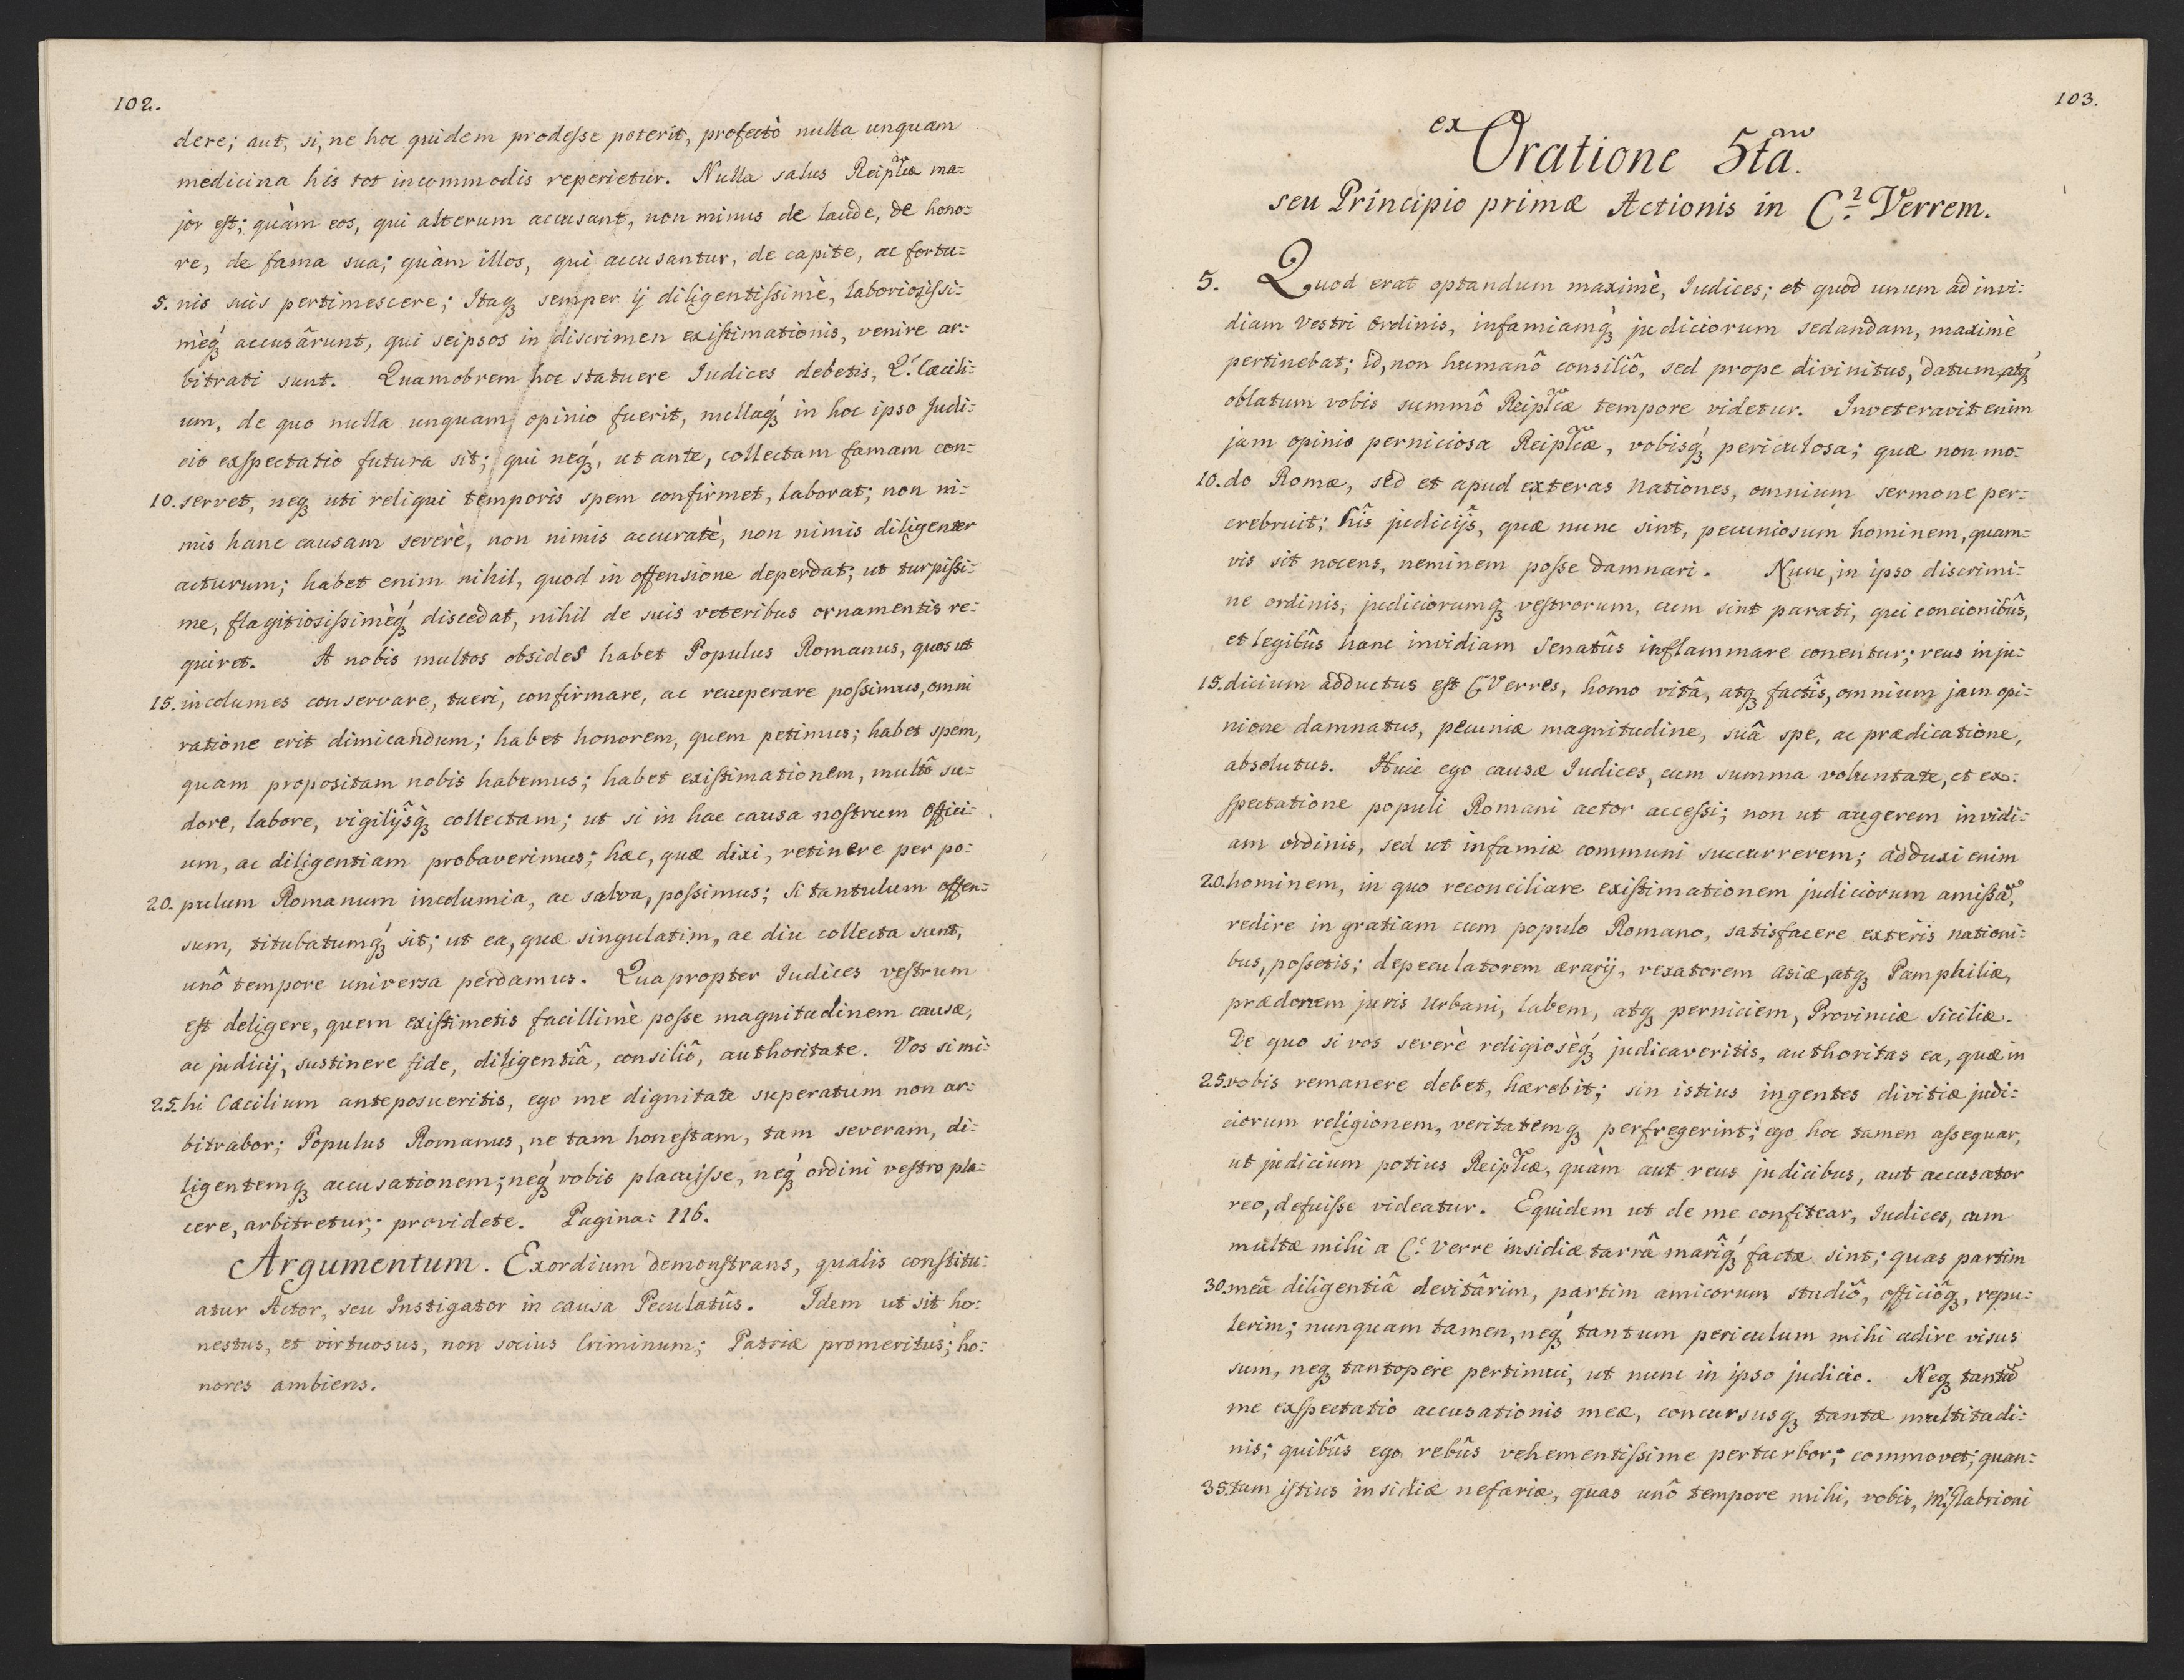 102.
dere; aut, si, ne hoc quidem prodesse poterit, profectò nulla unquam
medicina his tot incommodis reperietur. Nulla salus Reiplcæ ma=
jor est; quàm eos, qui alterum accusant, non minus de laude, de hono=
re, de fama sua; quàm illos, qui accusantur, de capite, ac fortu=
5. nis suis pertimescere; Itaq semper ij diligentissimè, laboriosissi=
mèq accusârunt, qui seipsos in discrimen existimationis, venire ar=
bitrati sunt. Quamobrem hoc statuere Iudices debetis, Q. Cæcili=
um, de quo nulla unquam opinio fuerit, nullaq in hoc ipso Judi=
cio exspectatio futura sit; qui neq, ut ante, collectam famam con=
10. servet, neq uti reliqui temporis spem confirmet, laborat; non ni=
mis hanc causam severè, non nimis accuratè, non nimis diligenter
acturum; habet enim nihil, quod in offensione deperdat; ut turpissi=
me, flagitiosissimèq discedat, nihil de suis veteribus ornamentis re=
quiret. A nobis multos obsides habet Populus Romanus, quos ut
15. incolumes conservare, tueri, confirmare, ac recuperare possimus, omni
ratione erit dimicandum; habet honorem, quem petimus; habet spem,
quam propositam nobis habemus; habet existimationem, multô su=
dore, labore, vigilijsq collectam; ut si in hac causa nostrum offici=
um, ac diligentiam probaverimus; hæc, quæ dixi, retinere per po=
20. pulum Romanum incolumia, ac salva, possimus; Si tantulum offen=
sum, titubatumq sit; ut ea, quæ singulatim, ac diu collecta sunt,
unô tempore universa perdamus. Quapropter Iudices vestrum
est deligere, quem existimetis facillimè posse magnitudinem causæ,
ac judicij, sustinere fide, diligentiâ, consiliô, authoritate. Vos si mi=
25. hi Cæcilium anteposueritis, ego me dignitate superatum non ar=
bitrabor; Populus Romanus, ne tam honestam, tam severam, di=
ligentemq accusationem; neq vobis placuisse, neq ordini vestro pla=
cere, arbitretur; providete. Pagina: 116.
Argumentum. Exordium demonstrans, qualis constitu=
atur Actor, seu Instigator in causa Peculatûs. Idem ut sit ho=
nestus, et virtuosus, non socius Criminum; Patriæ promeritus; ho=
nores ambiens.
103.
ex Oratione 5ta.
seu Principio primæ Actionis in C. Verrem.
5. Quod erat optandum maximè, Iudices; et quod unum ad invi=
diam vestri Ordinis, infamiamq judiciorum sedandam, maximè
pertinebat; id, non humanô consiliô, sed prope divinitus, datum atq
oblatum vobis summô Reiplcæ tempore videtur. Inveteravit enim
jam opinio perniciosa Reiplcæ, vobisq periculosa; quæ non mo=
10. do Romæ, sed et apud exteras Nationes, omnium sermone per=
crebruit; hîs judicijs, quæ nunc sint, pecuniosum hominem, quam=
vis sit nocens, neminem posse damnari. Nunc, in ipso discrimi=
ne ordinis, judiciorumq vestrorum, cum sint parati, qui concionibûs,
et legibûs hanc invidiam Senatûs inflammare conentur; reus in ju=
15. dicium adductus est C. Verres, homo vitâ, atq factîs, omnium jam opi=
nione damnatus, pecuniæ magnitudine, suâ spe, ac prædicatione,
absolutus. Huic ego causæ Iudices, cum summa voluntate, et ex=
spectatione populi Romani actor accessi; non ut augerem invidi=
am ordinis, sed ut infamiæ communi succurrerem; adduxi enim
20. hominem, in quo reconciliare existimationem judiciorum amissã,
redire in gratiam cum populo Romano, satisfacere exteris nationi=
bus, possetis; depeculatorem ærarij, vexatorem Asiæ, atq Pamphiliæ,
prædonem juris Urbani, labem, atq perniciem, Provinciæ Siciliæ.
De quo si vos severè religiosèq judicaveritis, authoritas ea, quæ in
25. vobis remanere debet, hærebit; sin istius ingentes divitiæ judi=
ciorum religionem, veritatemq perfregerint; ego hoc tamen assequar,
ut judicium potius Reiplcæ, quàm aut reus judicibus, aut accusator
reo, defuisse videatur. Equidem ut de me confitear, Iudices, cum
multæ mihi a C. Verre insidiæ tarrâ marîq factæ sint; quas partim
30. meâ diligentiâ devitârim, partim amicorum studiô, officiôq, repu=
lerim; nunquam tamen, neq tantum periculum mihi adire visus
sum, neq tantopere pertimui, ut nunc in ipso judicio. Neq tantũ
me exspectatio accusationis meæ, concursusq tantæ multitudi=
nis; quibûs ego rebûs vehementissime perturbor; commovet; quan=
35. tum istius insidiæ nefariæ, quas unô tempore mihi, vobis, M. Glabrioni